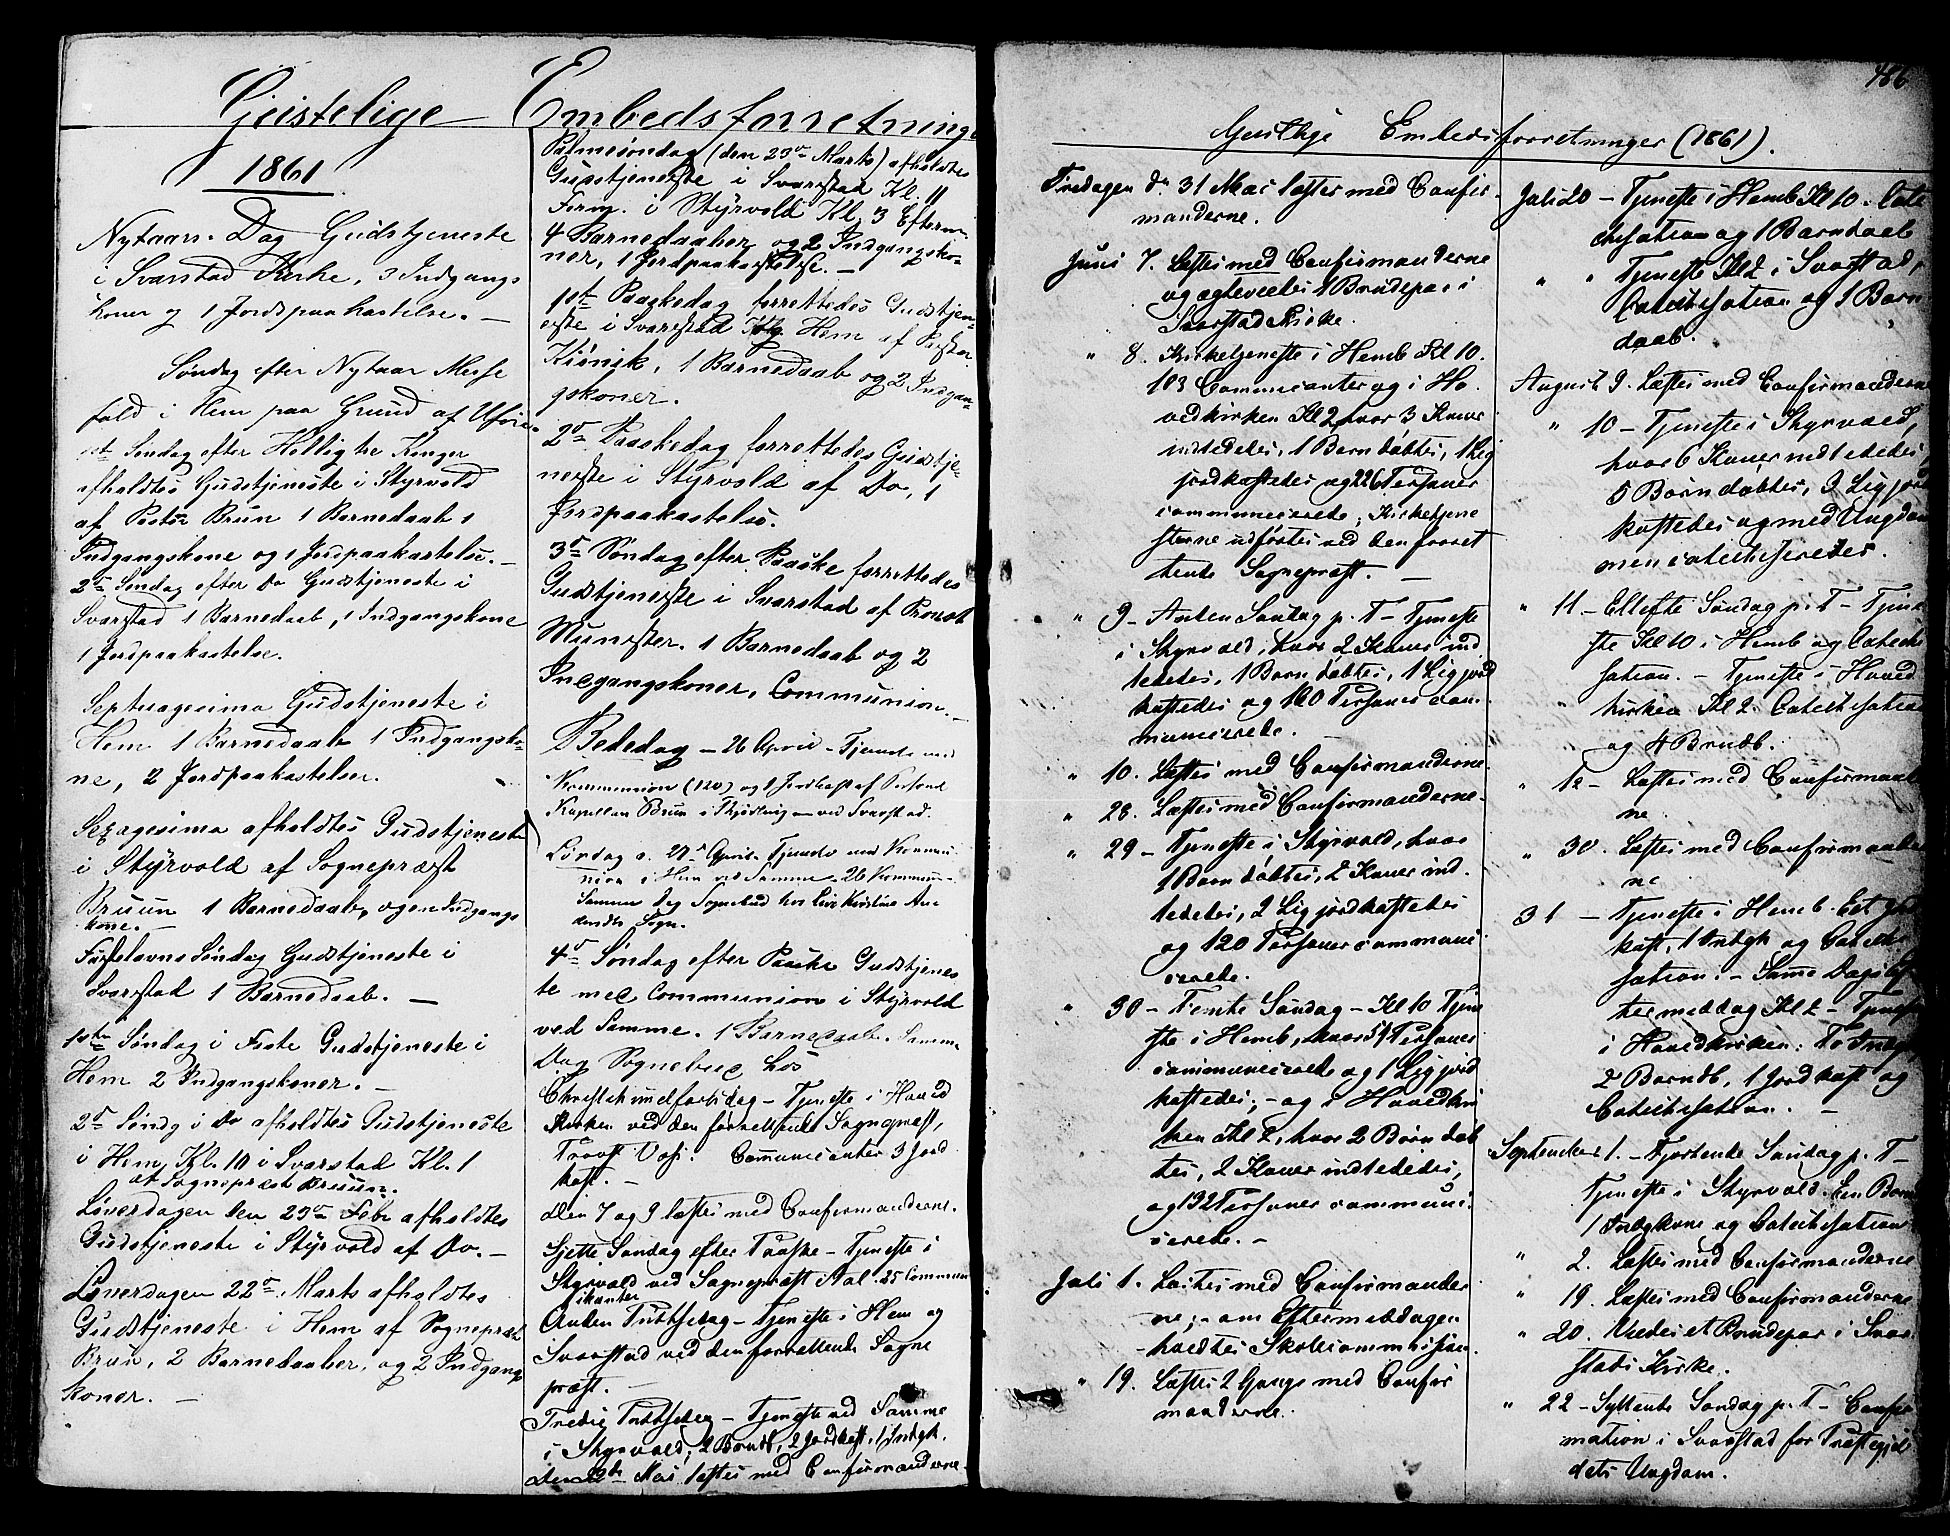 Geistelige Embedsforretninge
1861
Nytaars Dag Gudstjeneste
i Svarstad Kirke, 3 Indgangs
koner og 1 Jordspaakastelse. —
Søndag efter Nytaar Messe
fald i Hem paa Grund af Uføre.
1st Søndag efter Hellig tre Konger
afholdtes Gudstjeneste i Styrvold
af Pastor Brun 1 Barnedaab 1
Indgangskone og 1 Jordpaakastelse. —
2den Søndag efter Do Gudstjeneste i
Svarstad 1 Barnedaab, 1 Indgangskone
1 Jordpaakastelse.
Septuagesima Gudstjeneste i
Hem 1 Barnedaab 1 Indgangsko-
ne, 2 Jordpaakastelser.
Sexagesima afholdtes Gudstjeneste
i Styrvold af Sognepræst
Bruun 1 Barnedaab, og en Indgangs
kone. —
Fastelavns Søndag Gudstjeneste i
Svarstad 1 Barnedaab. —
1ste Søndag i Faste Gudstjeneste i
Hem 2 Indgangskoner. —
2den Søndg i Do afholdtes Gudstjeneste
i Hem Kl. 10 i Svarstad Kl. 1
af Sognepræst Bruun.
Løverdagen den 23de Febr afholdtes
Gudstjeneste i Styrvold af Do. —
Løverdagen 22de Marts afholdtes
Gudstjeneste i Hem af Sognepræst
Brun, 2 Barnedaaber, og 2 Indgangs
koner. —
Palmesøndag (den 23de Marts) afholdtes
Gudstjeneste i Svarstad Kl. 11
Form. i Styrvold Kl. 3 Efterm.
4 Barnedaaber og 2 Indgangsko-
ner, 1 Jordpaakastelse. —
1ste Paaskedag forrettedes Gudstjen-
este i Svarstad og Hem af Pastor
Kiønik, 1 Barnedaab og 2 Indgan-
gskoner.
2den Paaskedag forrettedes Gudstje-
neste i Styrvold af Do, 1
Jordpaakastelse.
3de Søndag efter Paaske forrettedes
Gudstjeneste i Svarstad af Provst
Munster. 1 Barnedaab og 2
Indgangskoner, Communion. —
Bededag — 26 April — Tjeneste med
Kommunion (120) og 1 Jordkast af Personel
Kapellan Brun i Skjødling ved Svarstad.
Løndag d. 27de April. Tjeneste med Kommu-
nion i Hem ved Samme. 26 Kommun-
Samme Dag Sognebud hos Live Kirstine An
dendts Sogn.
4de Søndag efter Paaske Gudstjenes
te med Communion i Styrvold
ved Samme. 1 Barnedaab. Samme
Dag Sognebud hos
Christi himmelfartsdag — Tjeneste i Hoved
kirken ved den forrettende Sognepræst,
Provst Vosi. Communicanter 3 Jord
kast. —
den 7 og 9 læstes med Confirmanderne.
Sjette Søndag efter Paaske — Tjeneste i
Styrvold ved Sognepræst Aal. 25 Commun
ikanter
Anden Pintsedag — Tjeneste i Hem og
Svarstad ved den forrettende Sogne
præst. —
Tredie Pintsedag — Tjeneste ved Samme
i Styrvold; 2 Barndb, 2 Jordkast, 1 Indgk.
den Mai læstes med Confirmanderne.
486
Geistlige Embedsforretninger (1861).
Fredagen d. 31 Mai læstes med Confir-
manderne.
Juni 7. Læstes med Confirmanderne
og ægteviedes 1 Brudepar i
Svarstad Kirke.
" 8. Kirketjeneste i Hemb Kl 10.
103 Communicanter og i Ho-
vedkirken Kl 2, hvor 3 Koner
indlededes, 1 Barn døbtes, 1 Lig
jordkastedes og 226 Personer
communicerede; Kirketjene
sterne udførtes ved den forret
tende Sognepræst. —
" 9 — Anden Søndag p. T — Tjeneste
i Styrvold, hvor 2 Koner ind
lededes, 1 Barn døbtes, 1 Lig jord
kastedes og 100 Personer com-
municerede. —
" 10. Læstes med Confirmanderne.
" 28. Læstes med Confirmanderne.
" 29 — Tjeneste i Styrvold, hvor
1 Barn døbtes, 2 Koner ind-
lededes, 2 Lig jordkastedes
og 120 Personer communi
cerede.
" 30 — Femte Søndag — Kl 10 Tjene
ste i Hemb, hvor 54 Personer
communicerede og 1 Lig jord
kastedes; — og i Hovedkir
ken Kl 2, hvor 2 Børn døb
tes, 2 Koner indlededes,
og 192 Personer communi
cerede. —
Juli 1. Læstes med Confirmander
ne; — om Eftermiddagen
holdtes Skolecommission.
" 19. Læstes 2 Gange med Confir
manderne.
Juli 20 — Tjeneste i Hemb Kl 10. Cate
chesation og 1 Barndaab
" " Tjeneste Kl 2 i Svarstad,
Catechesation og 1 Barn
daab.
August 9. Læstes med Confirmanderne
" 10 — Tjeneste i Styrvold,
hvor 6 Koner indlededes,
5 Børn døbtes, 3 Lig jord
kastedes og med Ungdom
men catechiseredes.
" 11 — Ellefte Søndag p. T — Tjene
ste Kl 10 i Hemb og Cateche
sation. — Tjeneste i Hoved
" kirken Kl 2. Catechesation
og 4 Brndb.
" 12 — Læstes med Confirmander
ne.
" 30. Læstes med Confirmander
ne
31 — Tjeneste i Hemb. Eet Jord
kast, 1 Indgk og Cateche
sation. — Samme Dags Ef
termiddag Kl 2 — Tjeneste
i Hovedkirken: To Indgk,
2 Barndb, 1 Jordkast og
Catechesation. —
September 1. — Fjortende Søndag p. T —
Tjeneste i Styrvold. Een Barnd
1 Indgkone og Catechesation
" 2. Læstes med Confirmanderne
" 19. Læstes med Confirmanderne
" 20. Viedes et Brudepar i Svar
stads Kirke.
" 22 — Syttende Søndag p. T — Confir
mation i Svarstad for Præstegjel
dets Ungdom.